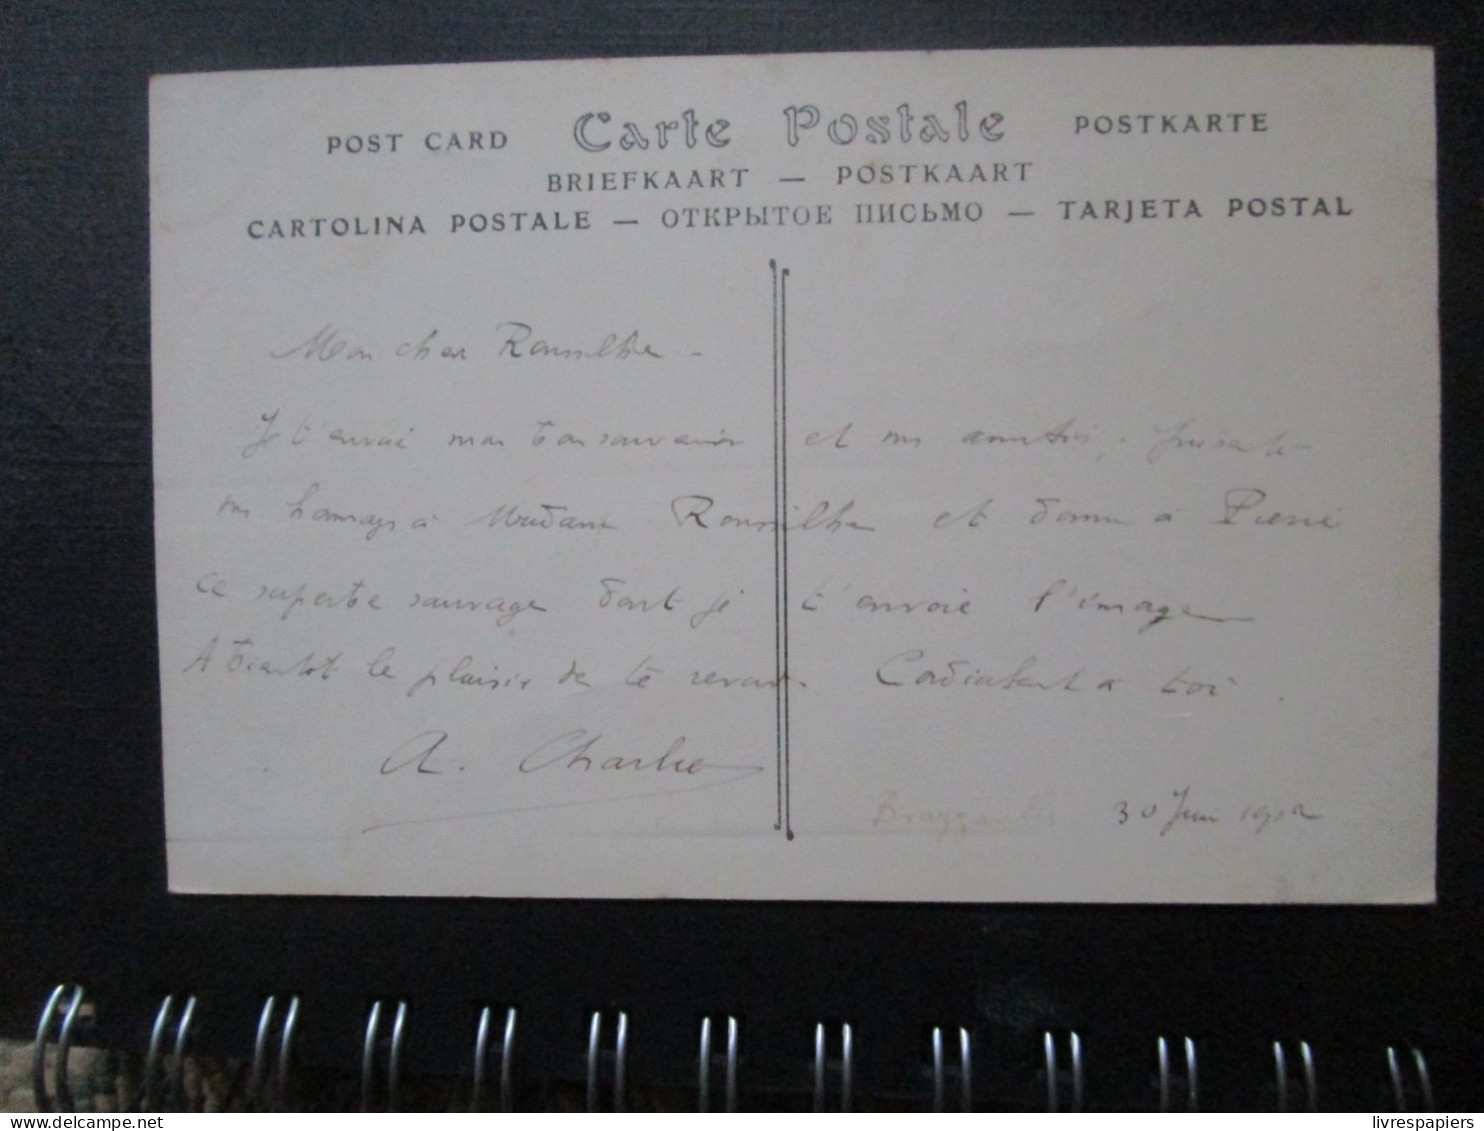 POST CARD Carte Postale POSTKARTE
BRIEFKAART — POSTKAART
CARTOLINA POSTALE — ОТКРЫТОЕ ПИСЬМО — TARJETA POSTAL
Mon cher Roussilhe -
Je t'envoie mon bon souvenir et mes amitiés. Présente
mes hommages à Madame Roussilhe et donne à Pierre
ce superbe sauvage dont je t'envoie l'image
A bientôt le plaisir de te revoir. Cordialement à toi.
A.
Brazzaville 30 Juin 1912
livrespapiers